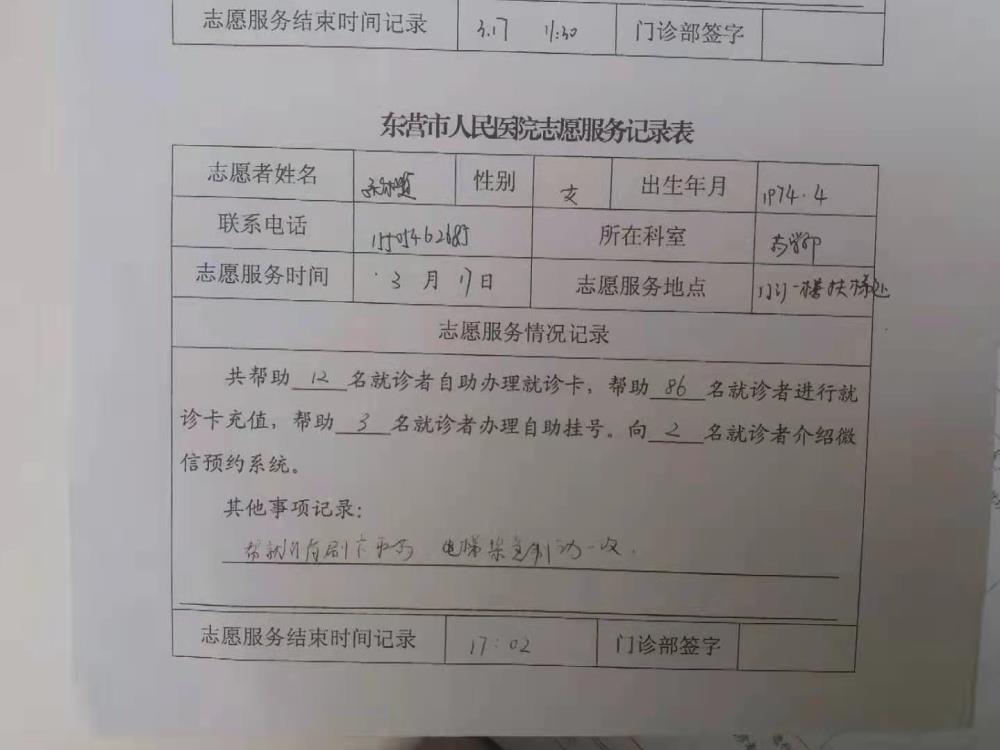 志愿服务结束时间记录 3.17 11:30 门诊部签字
东营市人民医院志愿服务记录表
志愿者姓名 性别 女 出生年月 1974.4
联系电话 15505462685 所在科室 药学部
志愿服务时间 3月17日 志愿服务地点 门诊一楼扶梯处
志愿服务情况记录
共帮助 12 名就诊者自助办理就诊卡，帮助 86 名就诊者进行就
诊卡充值，帮助 3 名就诊者办理自助挂号。向 2 名就诊者介绍微
信预约系统。
其他事项记录：
电梯紧急制动一次.
志愿服务结束时间记录 17:02 门诊部签字